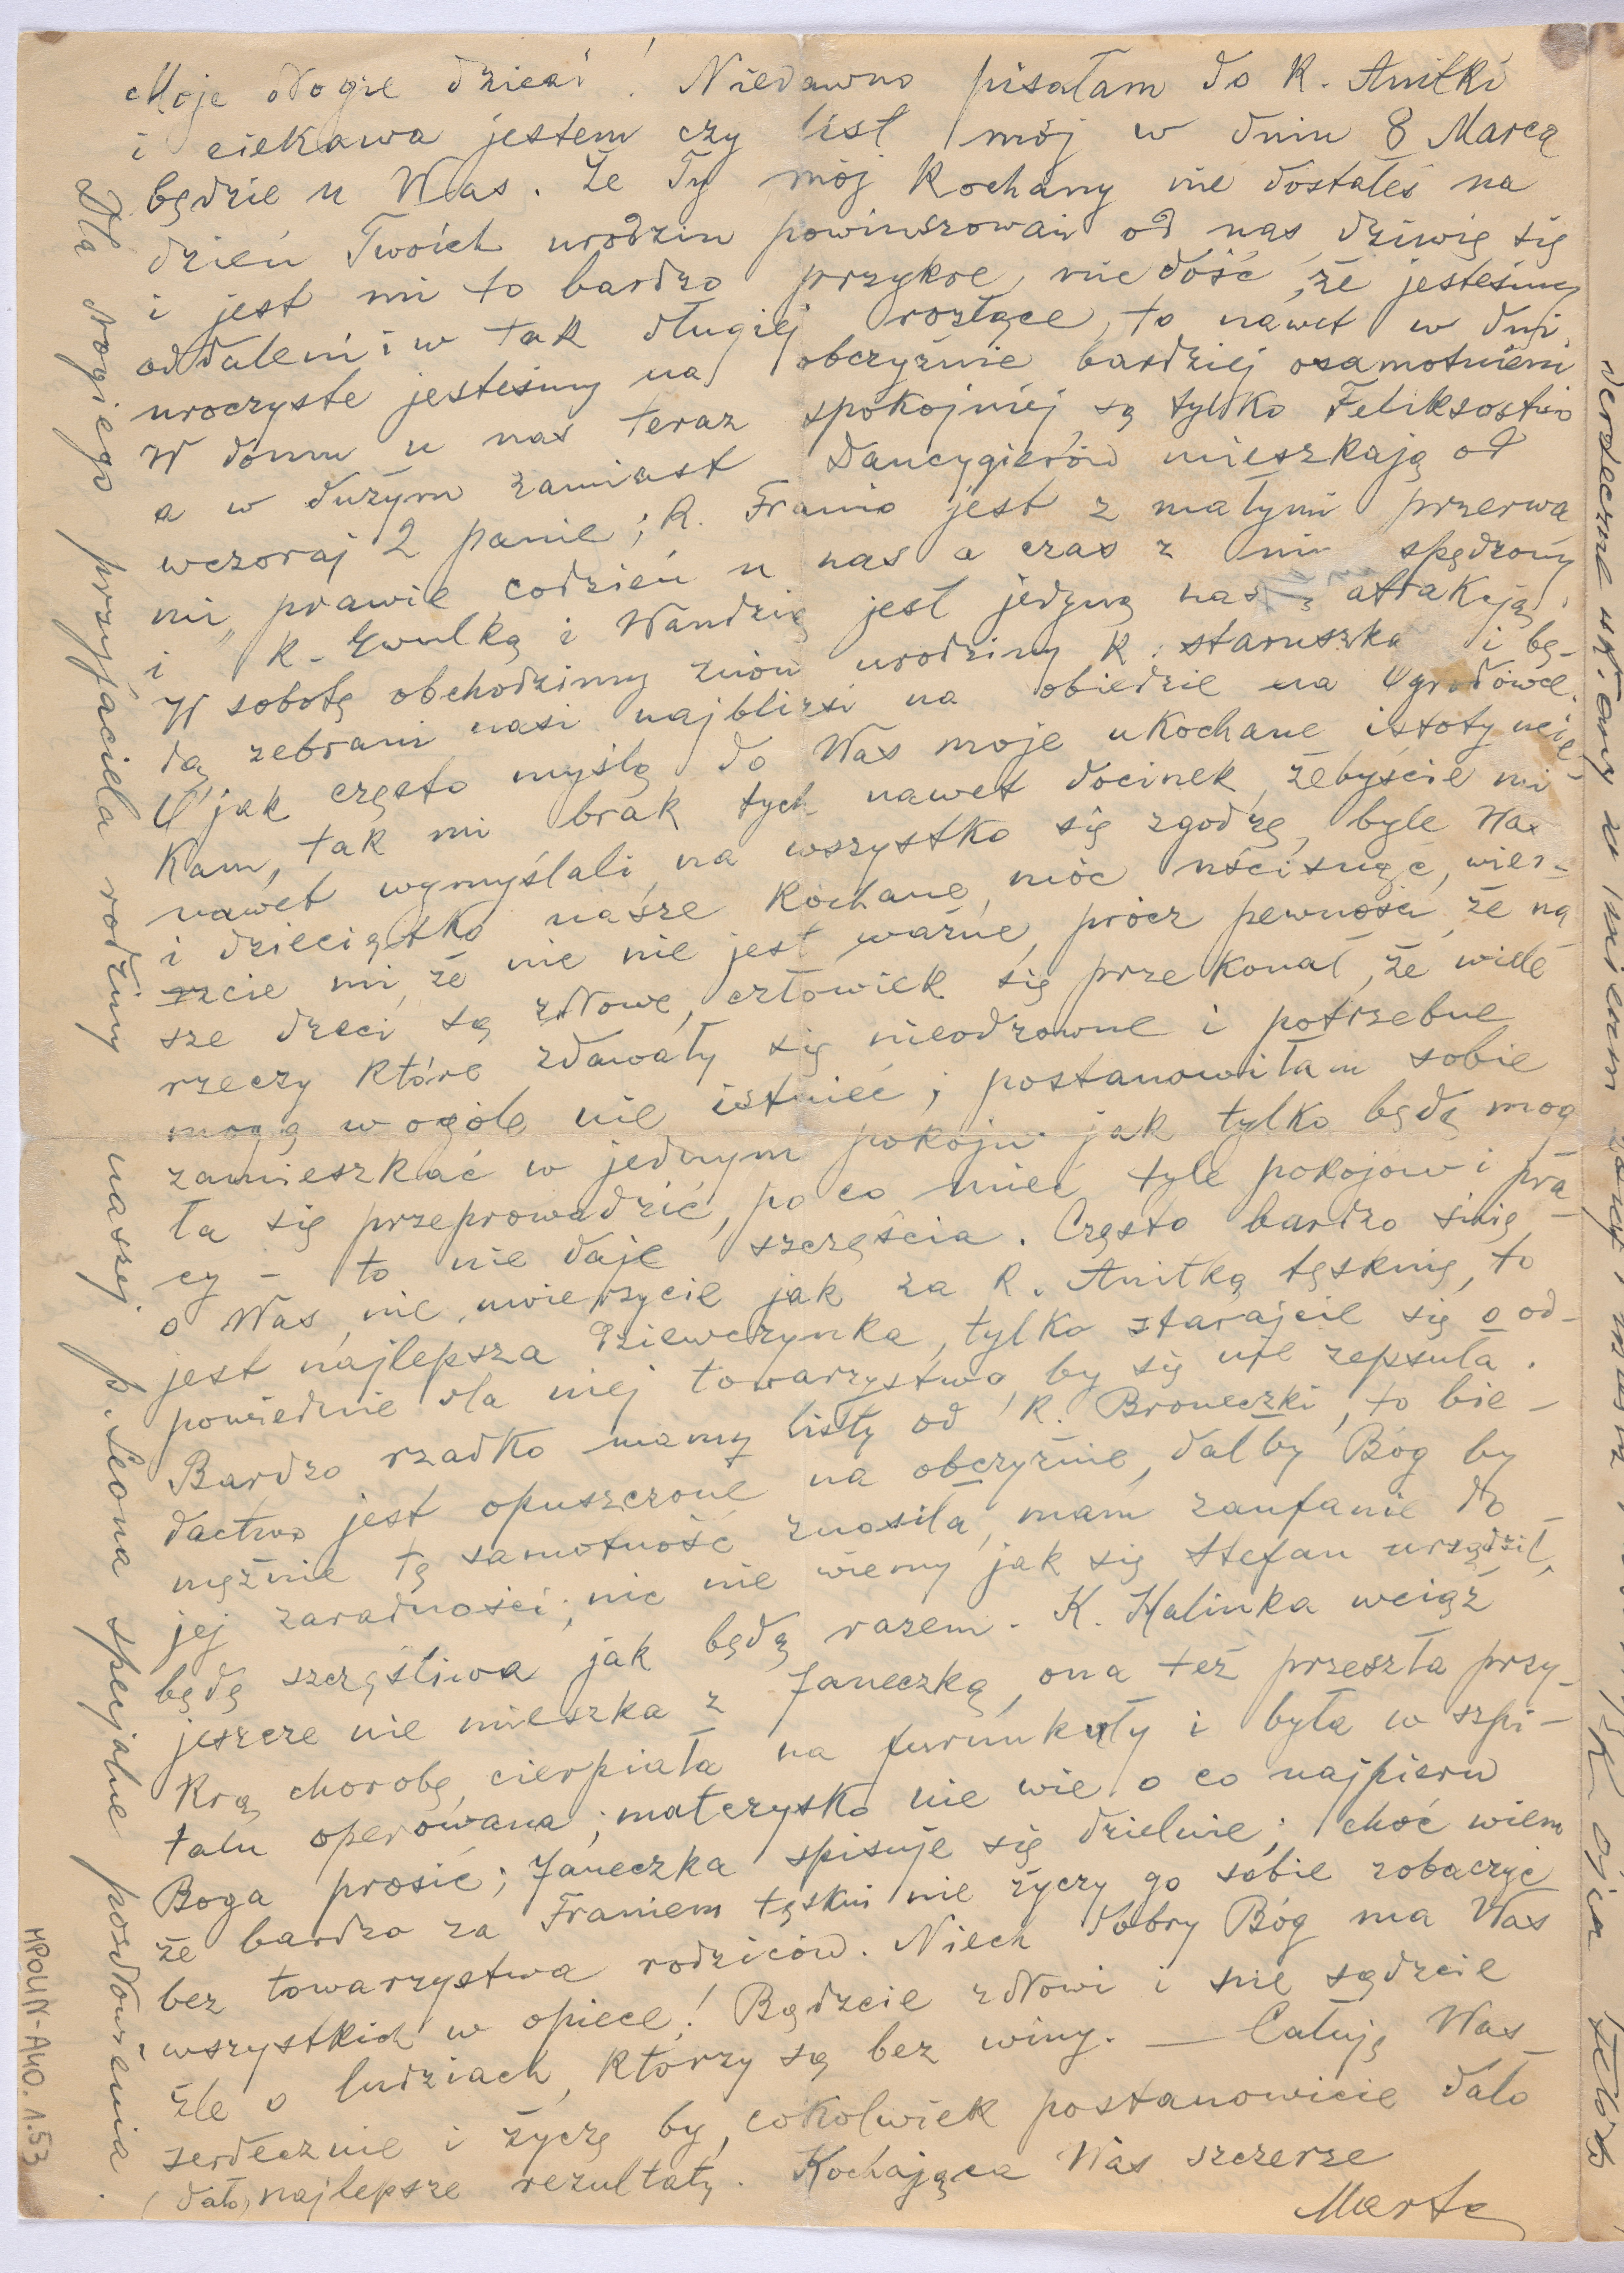 Moje drogie dzieci! Niedawno pisałam do K. Anitki
i ciekawa jestem czy list mój w dniu 8 Marca
będzie u Was. Że Ty mój Kochany nie dostałeś na
dzień Twoich urodzin powinszowań od nas, dziwię się
i jest mi to bardzo przykre, nie dość, że jesteśmy
oddaleni i w tak długiej rozłące, to nawet w dni
uroczyste jesteśmy na obczyźnie bardziej osamotnieni
W domu u nas teraz spokojniej, są tylko Feliksostwo
a w dużym zamiast Dancygierów mieszkają od
wczoraj 2 panie; K. Franio jest z małymi przerwa
mi, prawie codzień u nas a czas z nim spędzony
i K. Ewulką i Wandzią jest jedyną naszą atrakcją.
W sobotę obchodzimy znów urodziny K. staruszka i bę-
dą zebrani nasi najbliżsi na obiedzie na Ogrodowej.
O jak często myślę do Was moje ukochane istoty ucie-
kam, tak mi brak tych nawet docinek, żebyście mi
nawet wymyślali, na wszystko się zgodzę, byle Was
i dzieciątko nasze Kochane, móc uścisnąć, wier-
zcie mi, że nic nie jest ważne, prócz pewności, że na
sze dzieci są zdrowe, człowiek się przekonał, że wiele
rzeczy które zdawały się nieodzowne i potrzebne
mogą wogóle nie istnieć; postanowiłam sobie
zamieszkać w jednym pokoju jak tylko będę mog
ła się przeprowadzić, po co mieć tyle pokojów i pra
cy – to nie daje szczęścia. Często bardzo śnię
o Was, nie uwierzycie jak za K. Anitką tęsknię, to
jest najlepsza dziewczynka, tylko starajcie się o od-
powiednie dla niej towarzystwo by się nie zepsuła.
Bardzo rzadko mamy listy od K. Broneczki, to bie-
dactwo jest opuszczone na obczyźnie, dałby Bóg by
mężnie tę samotność znosiła, mam zaufanie do
jej zaradności; nic nie wiemy jak się Stefan urządził,
będę szczęśliwa jak będą razem. K. Halinka wciąż
jeszcze nie mieszka z Janeczką, ona też przeszła przy-
krą chorobę, cierpiała na furunkuły i była w szpi-
talu operowana; matczysko nie wie o co najpierw
Boga prosić; Janeczka spisuje się dzielnie; choć wiem
że bardzo za Franiem tęskni nie życzy go sobie zobaczyć
bez towarzystwa rodziców. Niech dobry Bóg ma Was
wszystkich w opiece! Bądźcie zdrowi i nie sądźcie
źle o ludziach, którzy są bez winy. — Całuję Was
serdecznie i życzę by, cokolwiek postanowicie dało
(dało) najlepsze rezultaty. Kochająca Was szczerze
Marta
Dla drogiego przyjaciela rodziny naszej p. Leona specjalne pozdrowienia.
serdeczne
MPOLIN-A40.1.53